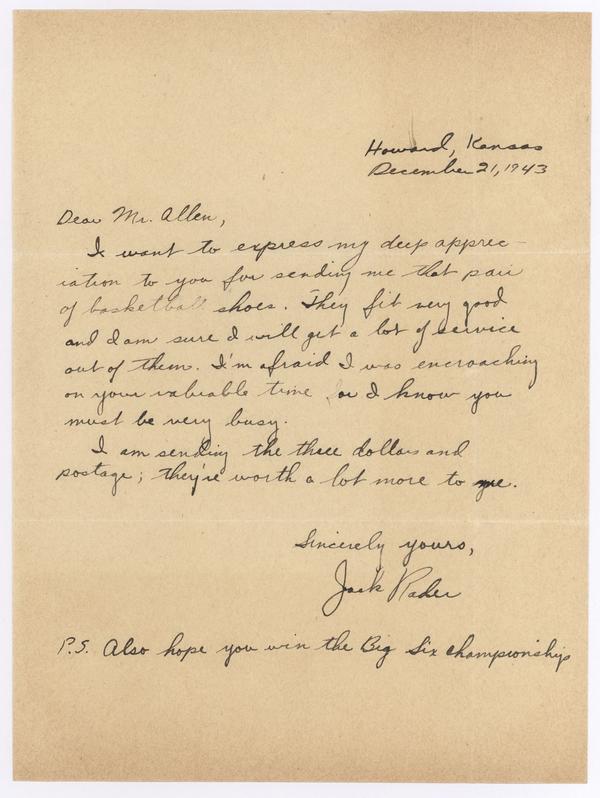 Howard, Kansas
December 21, 1943
Dear Mr. Allen,
I want to express my deep apprec-
iation to you for sending me that pair
of basketball shoes. They fit very good
and I am sure I will get a lot of service
out of them. I'm afraid I was encroaching
on your valuable time for I know you
must be very busy.
I am sending the three dollars and
postage; they're worth a lot more to me.
Sincerely yours,
Jack Rader
P.S. Also hope you win the Big Six championship